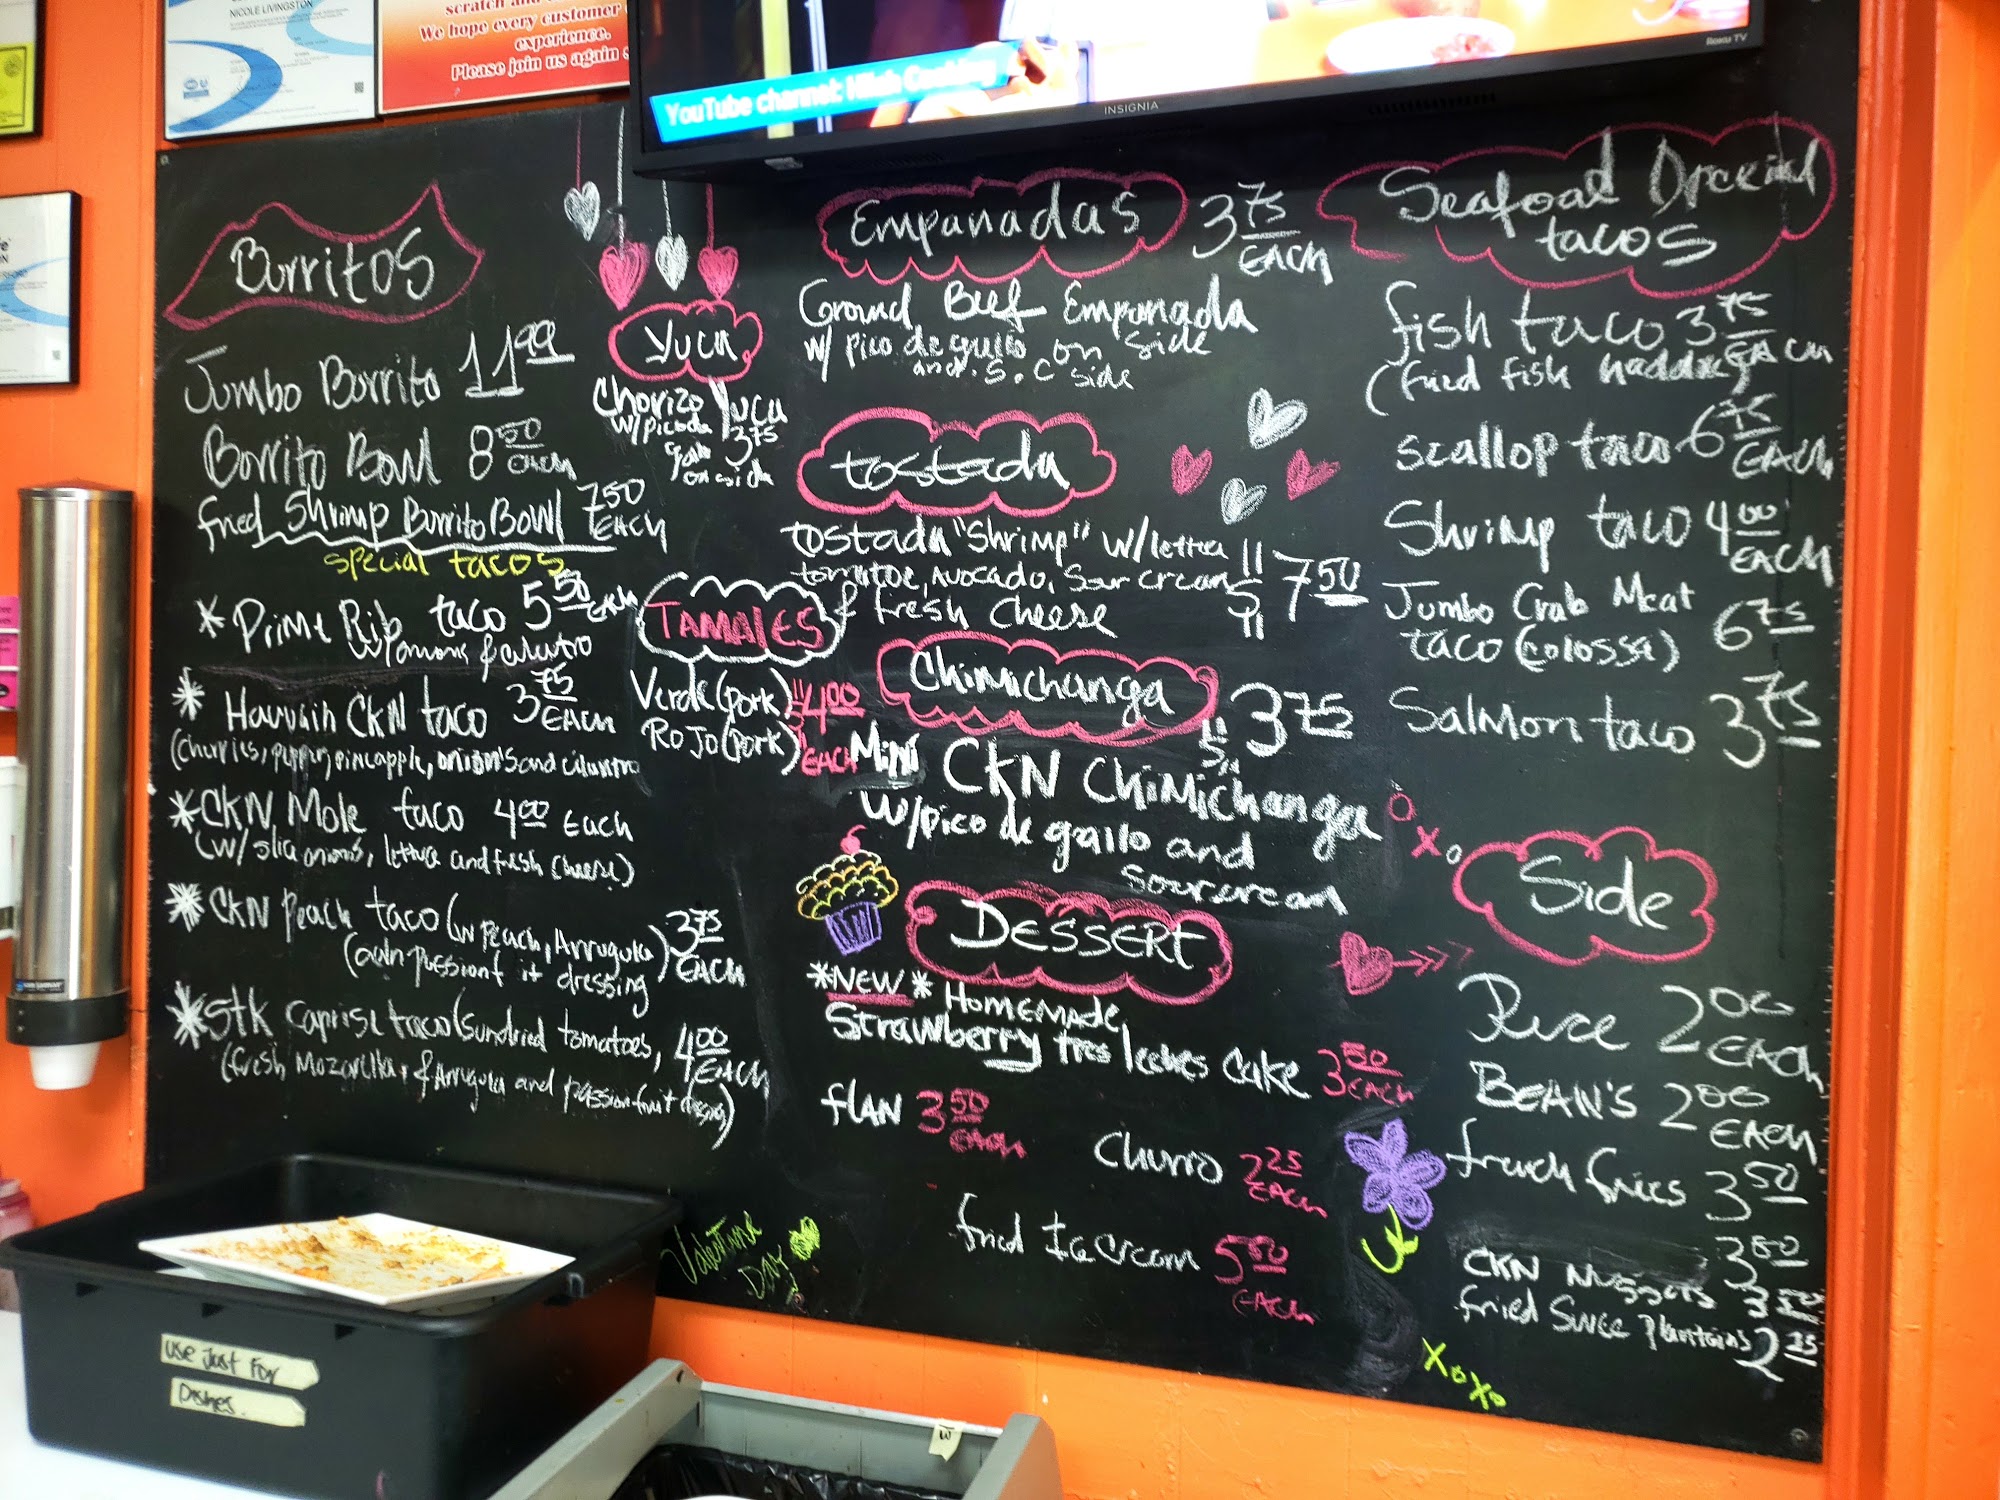 NICOLE LIVINGSTON
scratch and
We hope every customer
experience.
Please join us again
YouTube channel:
INSIGNIA
Roku TV
Burritos
Jumbo Burrito 11.99
Borrito Bowl 8.50 each
fried Shrimp Burrito Bowl 7.50 EACH
special tacos
* Prime Rib taco 5.50 EACH
w/onions & cilantro
* CKN taco 3.75 EACH
(cherries, pepper, pineapple, onions and cilantro
* CKN Mole taco 4.00 Each
(w/ slice onions, lettuce and fresh cheese)
* CKN Peach taco (w Peach, Arrugula) 3.75 EACH
dressing
* Stk Caprise taco (Sundried tomatoes, 4.00 EACH
(fresh Mozarella, & Arrugula and passion fruit
Yuca
Chorizo Yuca
3.75
on side
TAMALES
Verde (pork) $4.00
Rojo (pork) EACH
Empanadas 3.75 EACH
Ground Beef Empanada
w/ pico de gallo on side
and. S. C side
tostada
tostada "Shrimp" w/lettuce
tomatoe, Avocado, Sour cream $7.50
& fresh cheese
Chimichanga $3.75
Mini CKN Chimichanga
w/pico de gallo and
sourcream
DESSERT
*NEW* Homemade
Strawberry tres leches cake 3.50 EACH
flAN 3.50 EACH
Churro 2.25 EACH
fried Ice cream 5.50 EACH
Valentine
Day
Seafood
tacos
fish taco 3.75 EACH
(fried fish
scallop taco 6.75 EACH
Shrimp taco 4.00 EACH
Jumbo Crab Meat
taco (colossa) 6.75
Salmon taco 3.75
OXO
Side
Rice 2.00 EACH
BEAN'S 2.00 EACH
french fries 3.50
CKN Nuggets 3.50
fried Swee Plantains 2.25
XOXO
Use Just For
Dishes.